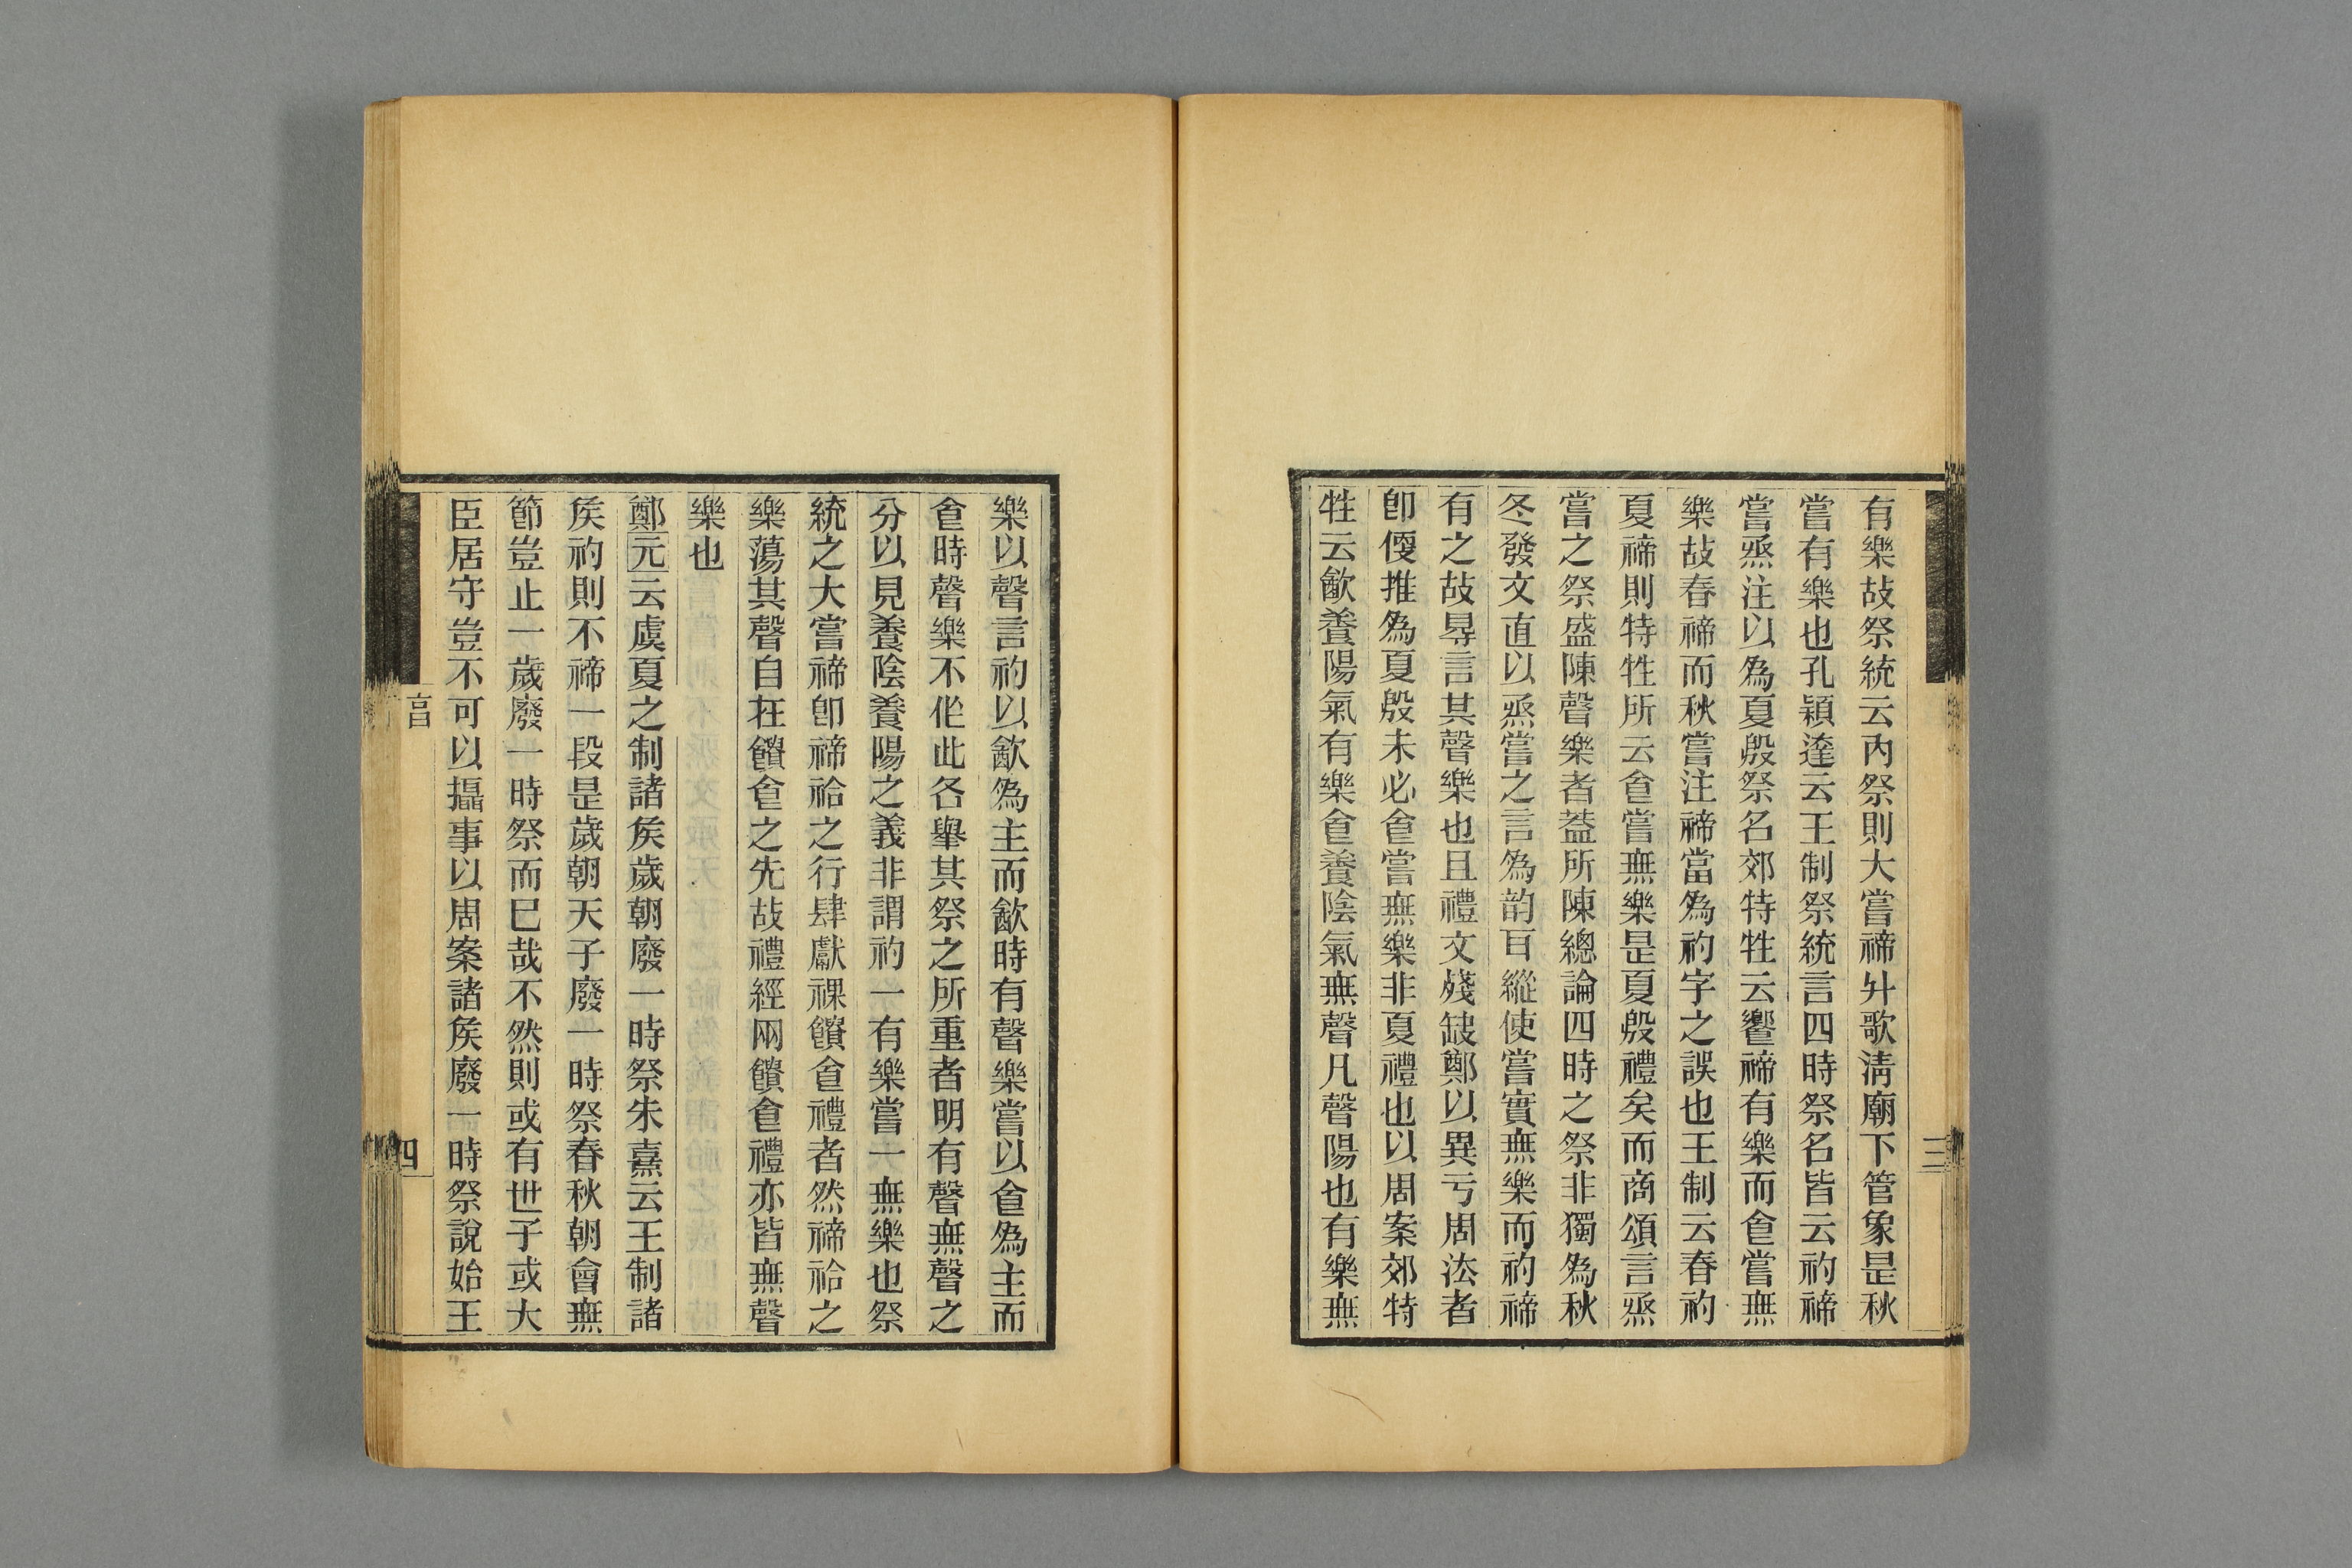 有樂故祭統云內祭則大嘗禘升歌淸廟下管象是秋
嘗有樂也孔穎達云王制祭統言四時祭名皆云礿禘
嘗烝注以爲夏殷祭名郊特牲云饗禘有樂而食嘗無
樂故春禘而秋嘗注禘當爲礿字之誤也王制云春礿
夏禘則特牲所云食嘗無樂是夏殷禮矣而商頌言烝
嘗之祭盛陳聲樂者葢所陳總論四時之祭非獨爲秋
冬發文直以烝嘗之言爲韵耳縱使嘗實無樂而礿禘
有之故㝵言其聲樂也且禮文殘缺鄭以異亏周法者
卽偄推爲夏殷未必食嘗無樂非夏禮也以周案郊特
牲云飮養陽氣有樂食養陰氣無聲凡聲陽也有樂無
三
樂以聲言礿以飮爲主而飮時有聲樂嘗以食爲主而
食時聲樂不作此各舉其祭之所重者明有聲無聲之
分以見養陰養陽之義非謂礿一有樂嘗一無樂也祭
統之大嘗禘卽禘祫之行肆獻祼饙食禮者然禘祫之
樂蕩其聲自在饙食之先故禮經兩饙食禮亦皆無聲
樂也
鄭元云虞夏之制諸矦歲朝廢一時祭朱熹云王制諸
矦礿則不禘一段是歲朝天子廢一時祭春秋朝會無
節豈止一歲廢一時祭而巳哉不然則或有世子或大
臣居守豈不可以攝事以周案諸矦廢一時祭說始王
四